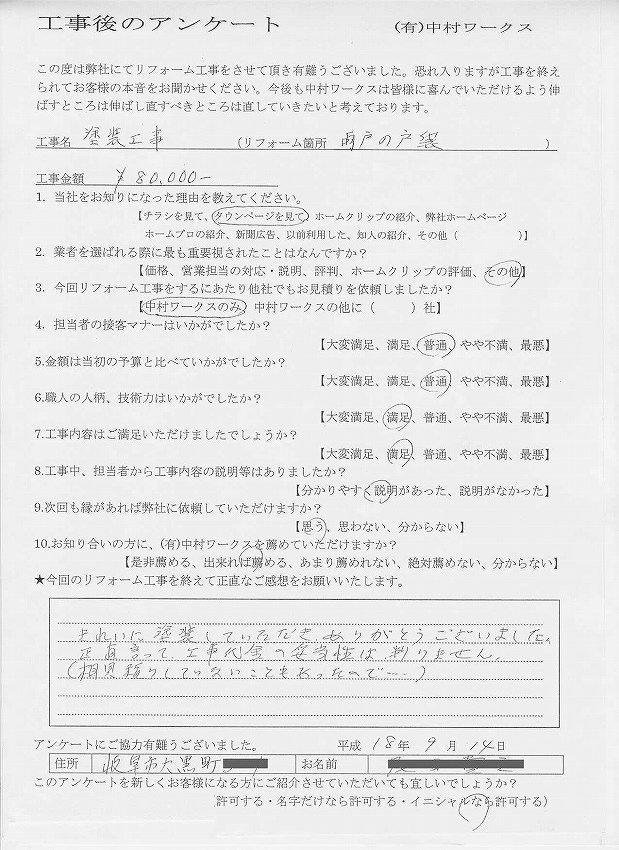 工事後のアンケート (有)中村ワークス
この度は弊社にてリフォーム工事をさせて頂き有難うございました。恐れ入りますが工事を終え
られてお客様の本音をお聞かせください。今後も中村ワークスは皆様に喜んでいただけるよう伸
ばすところは伸ばし直すべきところは直していきたいと考えております。
工事名 塗装工事 (リフォーム箇所 雨戸の戸袋 )
工事金額 ¥80,000-
1. 当社をお知りになった理由を教えてください。
【チラシを見て、タウンページを見て、ホームクリップの紹介、弊社ホームページ
ホームプロの紹介、新聞広告、以前利用した、知人の紹介、その他（ ）】
2. 業者を選ばれる際に最も重要視されたことはなんですか？
【価格、営業担当の対応・説明、評判、ホームクリップの評価、その他】
3. 今回リフォーム工事をするにあたり他社でもお見積りを依頼しましたか？
【中村ワークスのみ、中村ワークスの他に（ ）社】
4. 担当者の接客マナーはいかがでしたか？
【大変満足、満足、普通、やや不満、最悪】
5.金額は当初の予算と比べていかがでしたか？
【大変満足、満足、普通、やや不満、最悪】
6.職人の人柄、技術力はいかがでしたか？
【大変満足、満足、普通、やや不満、最悪】
7.工事内容はご満足いただけましたでしょうか？
【大変満足、満足、普通、やや不満、最悪】
8.工事中、担当者から工事内容の説明等はありましたか？
【分かりやすく説明があった、説明がなかった】
9.次回も縁があれば弊社に依頼していただけますか？
【思う、思わない、分からない】
10.お知り合いの方に、(有)中村ワークスを薦めていただけますか？
【是非薦める、出来れば薦める、あまり薦めれない、絶対薦めない、分からない】
★今回のリフォーム工事を終えて正直なご感想をお願いいたします。
きれいに塗装していただきありがとうございました。
正直言って工事代金の妥当性は判りません。
(相見積りしていないこともあったので……)
アンケートにご協力有難うございました。 平成 18年 9月 14日
住所 岐阜市大黒町 お名前
このアンケートを新しくお客様になる方にご紹介させていただいても宜しいでしょうか？
許可する・名字だけなら許可する・イニシャルなら許可する)